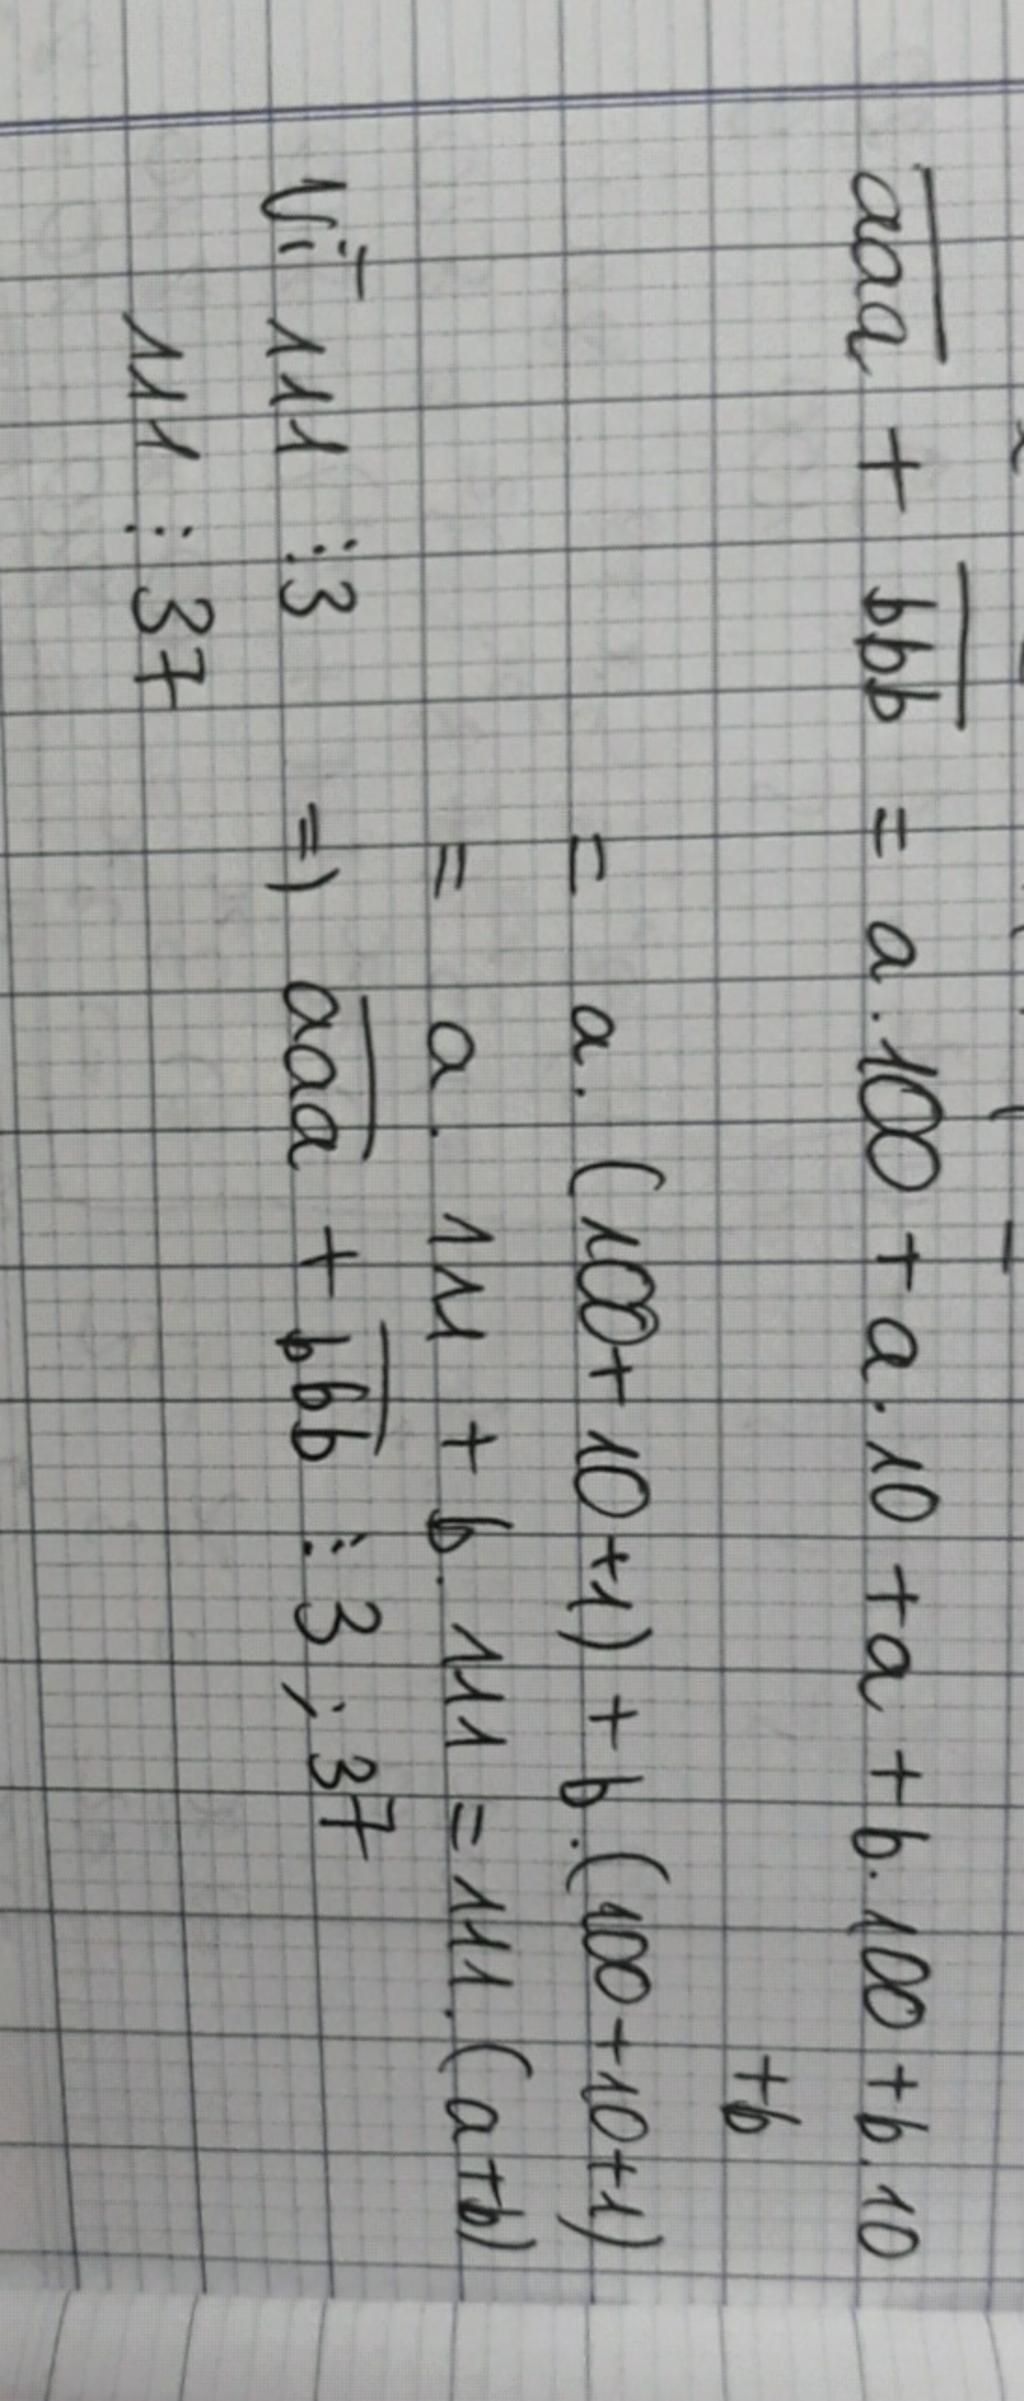 aaa + bbb = a.100 + a.10 + a + b.100 + b.10
+b
= a.(100+10+1) + b.(100+10+1)
= a.111 + b.111 = 111.(a+b)
Vì 111 ⋮ 3 => aaa + bbb ⋮ 3 ; 37
111 ⋮ 37